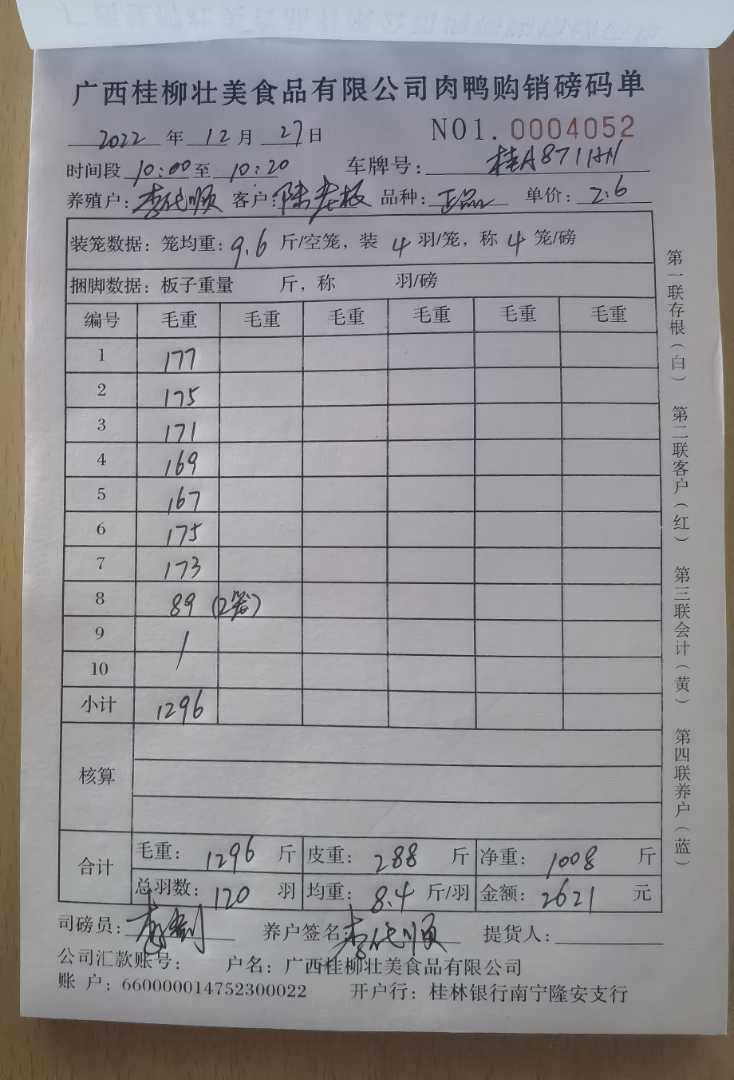 广西桂柳壮美食品有限公司肉鸭购销磅码单
2022 年 12 月 27 日 NO1. 0004052
时间段 10:00 至 10:20 车牌号: 桂A8711AN
养殖户: 李代顺 客户: 陈老板 品种: 正品 单价: 2.6
装笼数据: 笼均重: 9.6 斤/空笼, 装 4 羽/笼, 称 4 笼/磅
捆脚数据: 板子重量 斤, 称 羽/磅
编号 毛重 毛重 毛重 毛重 毛重 毛重
1 177
2 175
3 171
4 169
5 167
6 175
7 173
8 89 (2笼)
9 /
10
小计 1296
核算
合计 毛重: 1296 斤 皮重: 288 斤 净重: 1008 斤
总羽数: 120 羽 均重: 8.4 斤/羽 金额: 2621 元
司磅员: 养户签名: 李代顺 提货人:
公司汇款账号: 户名: 广西桂柳壮美食品有限公司
账 户: 660000014752300022 开户行: 桂林银行南宁隆安支行
第一联存根(白) 第二联客户(红) 第三联会计(黄) 第四联养户(蓝)